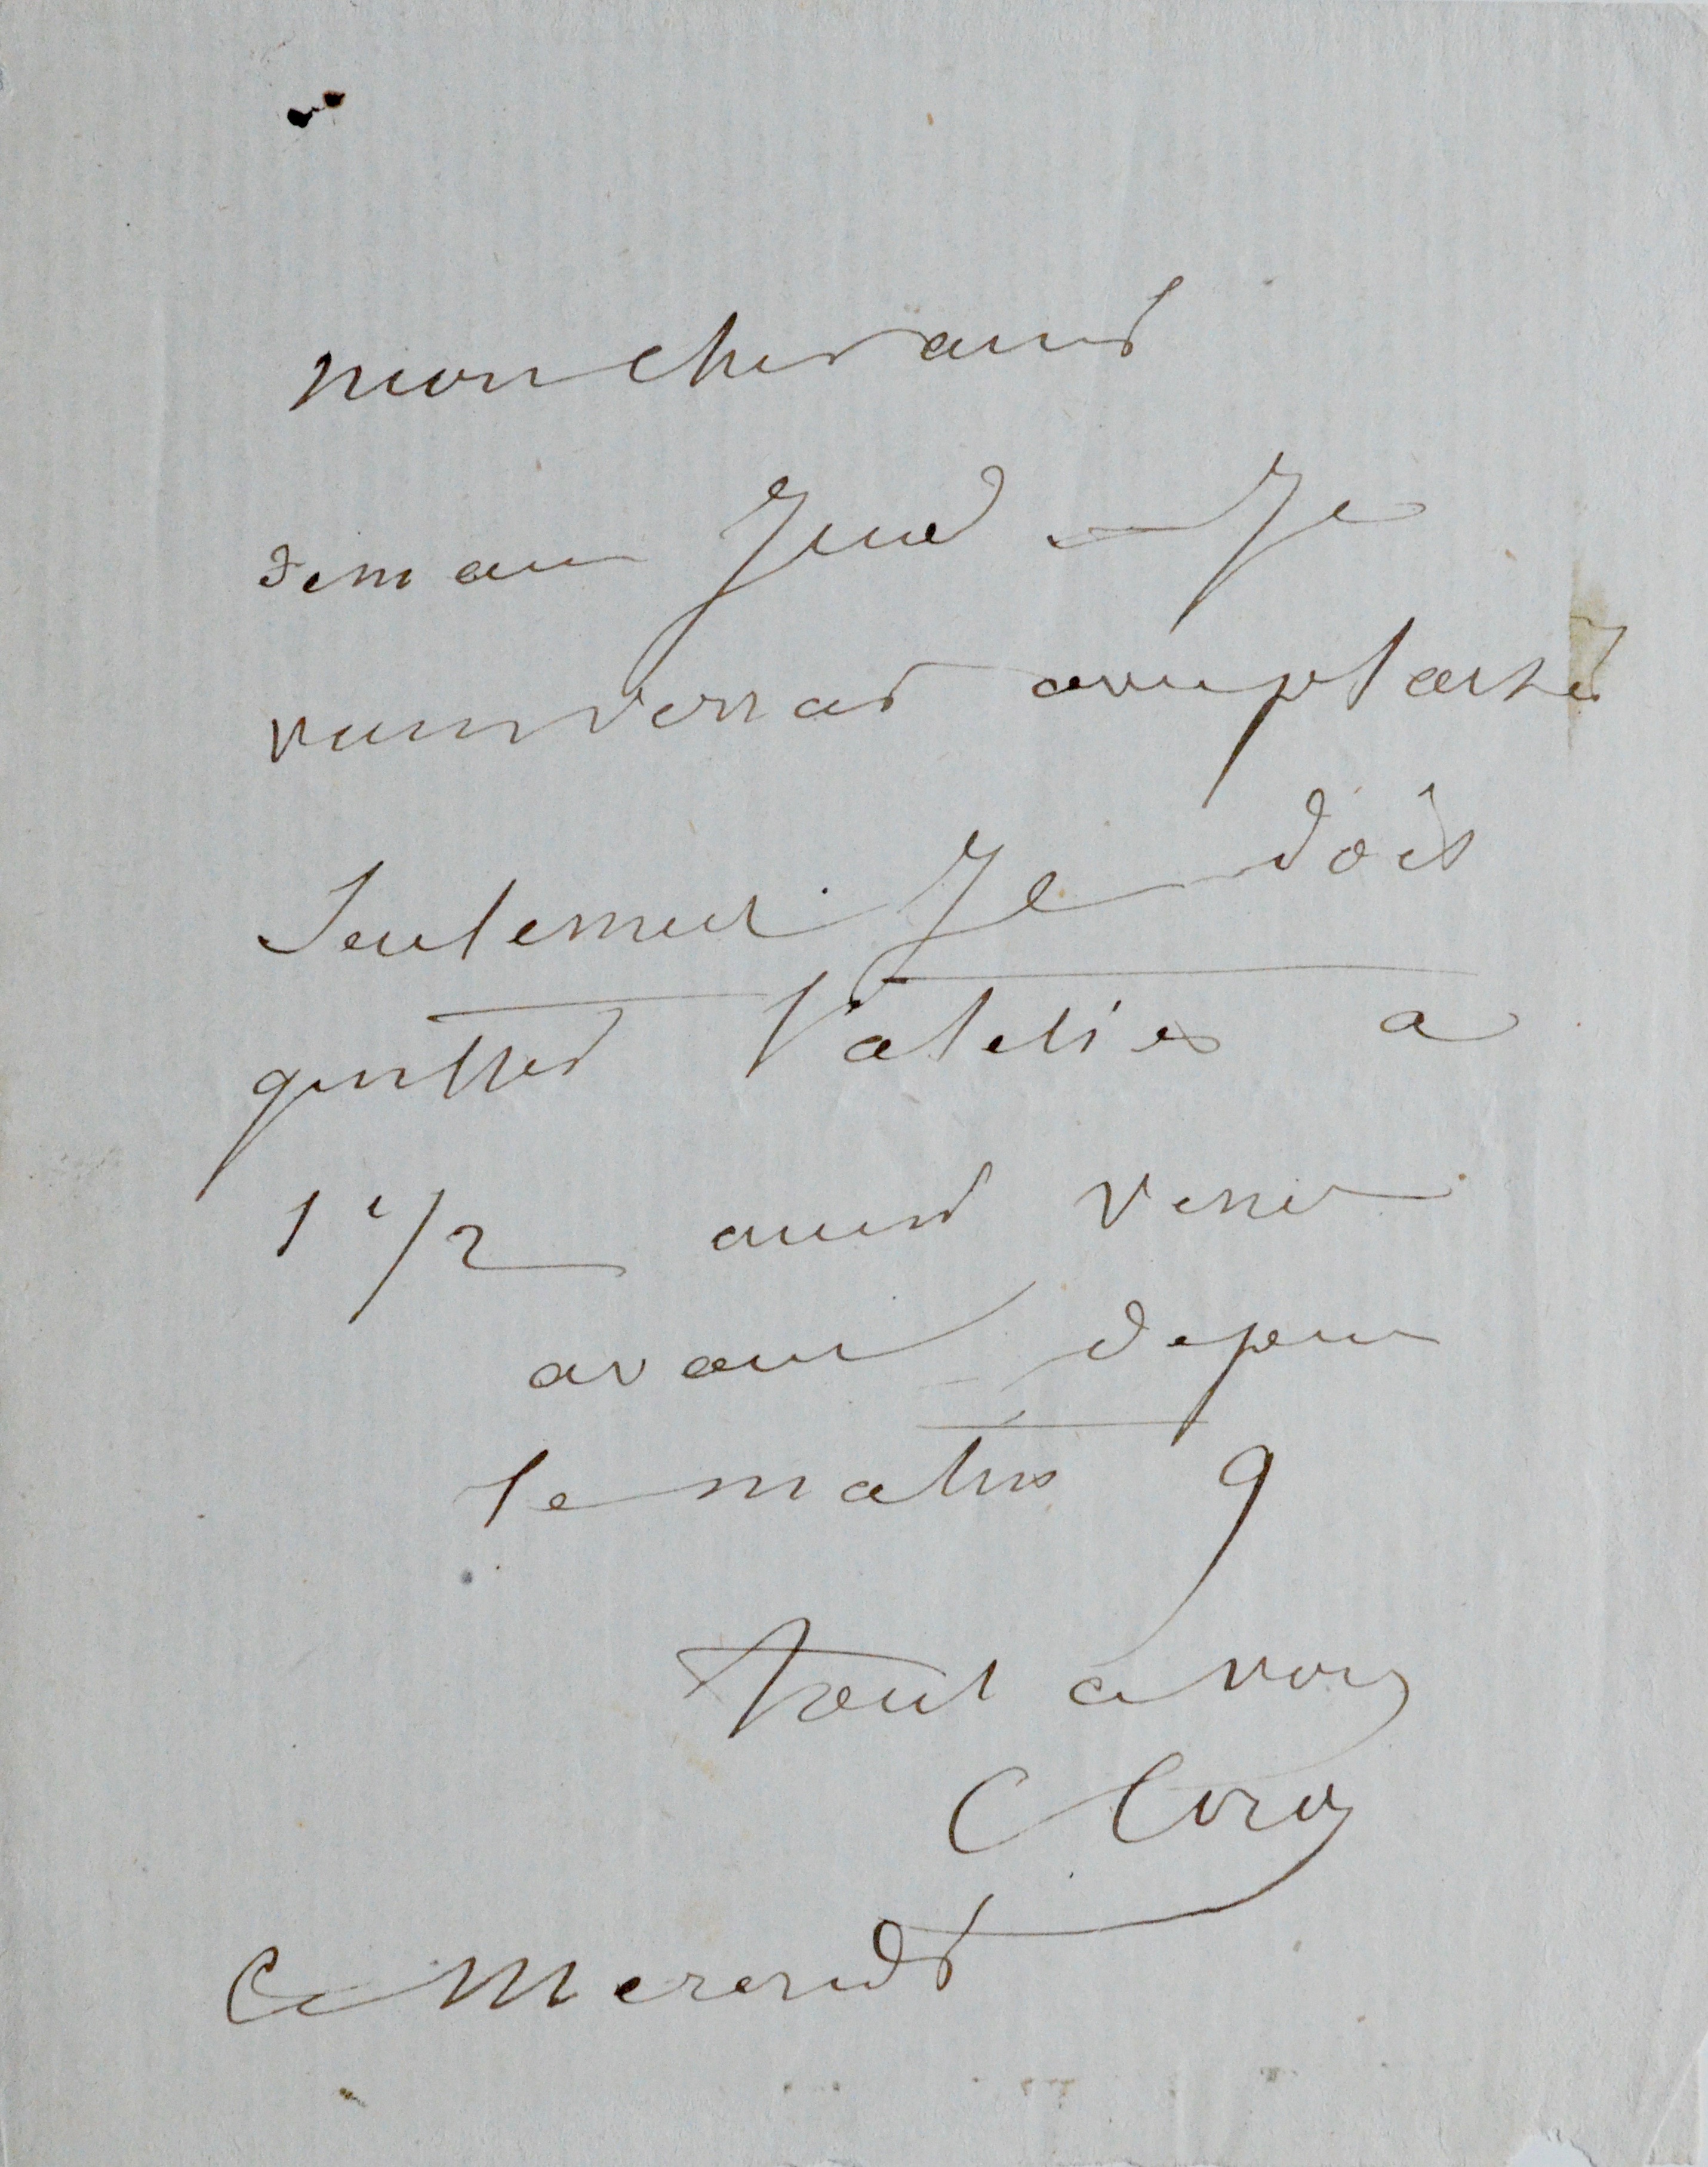 mon cher ami
demain Jeudi Je
vous verrai avec plaisir
Seulement Je dois
quitter l'atelier a
1 1/2 ainsi venir
avant depuis
le matin 9
tout a vous
C Corot
Ce Mercredi